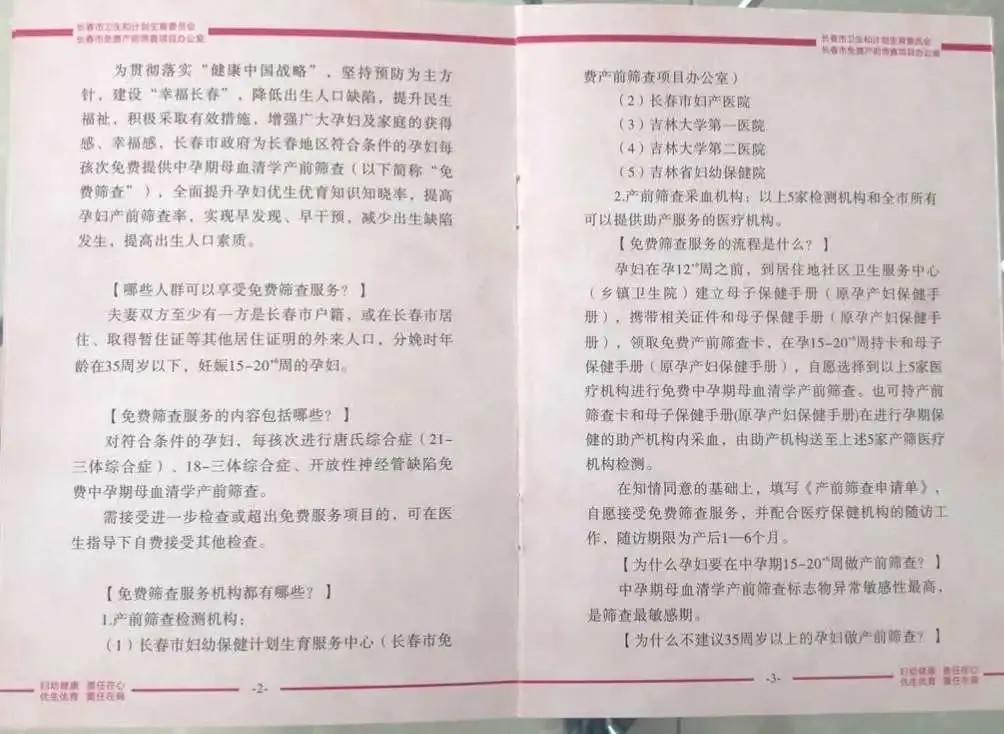 长春市卫生和计划生育委员会
长春市免费产前筛查项目办公室
为贯彻落实“健康中国战略”，坚持预防为主方
针，建设“幸福长春”，降低出生人口缺陷，提升民生
福祉，积极采取有效措施，增强广大孕妇及家庭的获得
感、幸福感，长春市政府为长春地区符合条件的孕妇每
孩次免费提供中孕期母血清学产前筛查（以下简称“免
费筛查”），全面提升孕妇优生优育知识知晓率，提高
孕妇产前筛查率，实现早发现、早干预，减少出生缺陷
发生，提高出生人口素质。
【哪些人群可以享受免费筛查服务？】
夫妻双方至少有一方是长春市户籍，或在长春市居
住、取得暂住证等其他居住证明的外来人口，分娩时年
龄在35周岁以下，妊娠15-20⁺⁶周的孕妇。
【免费筛查服务的内容包括哪些？】
对符合条件的孕妇，每孩次进行唐氏综合症（21-
三体综合症）、18-三体综合症、开放性神经管缺陷免
费中孕期母血清学产前筛查。
需接受进一步检查或超出免费服务项目的，可在医
生指导下自费接受其他检查。
【免费筛查服务机构都有哪些？】
1.产前筛查检测机构：
（1）长春市妇幼保健计划生育服务中心（长春市免
妇幼健康 责任在心
优生优育 责任在肩
-2-
长春市卫生和计划生育委员会
长春市免费产前筛查项目办公室
费产前筛查项目办公室）
（2）长春市妇产医院
（3）吉林大学第一医院
（4）吉林大学第二医院
（5）吉林省妇幼保健院
2.产前筛查采血机构：以上5家检测机构和全市所有
可以提供助产服务的医疗机构。
【免费筛查服务的流程是什么？】
孕妇在孕12⁺⁶周之前，到居住地社区卫生服务中心
（乡镇卫生院）建立母子保健手册（原孕产妇保健手
册），携带相关证件和母子保健手册（原孕产妇保健手
册），领取免费产前筛查卡，在孕15-20⁺⁶周持卡和母子
保健手册（原孕产妇保健手册），自愿选择到以上5家医
疗机构进行免费中孕期母血清学产前筛查。也可持产前
筛查卡和母子保健手册(原孕产妇保健手册)在进行孕期保
健的助产机构内采血，由助产机构送至上述5家产筛医疗
机构检测。
在知情同意的基础上，填写《产前筛查申请单》，
自愿接受免费筛查服务，并配合医疗保健机构的随访工
作，随访期限为产后1—6个月。
【为什么孕妇要在中孕期15-20⁺⁶周做产前筛查？】
中孕期母血清学产前筛查标志物异常敏感性最高，
是筛查最敏感期。
【为什么不建议35周岁以上的孕妇做产前筛查？】
-3-
妇幼健康 责任在心
优生优育 责任在肩